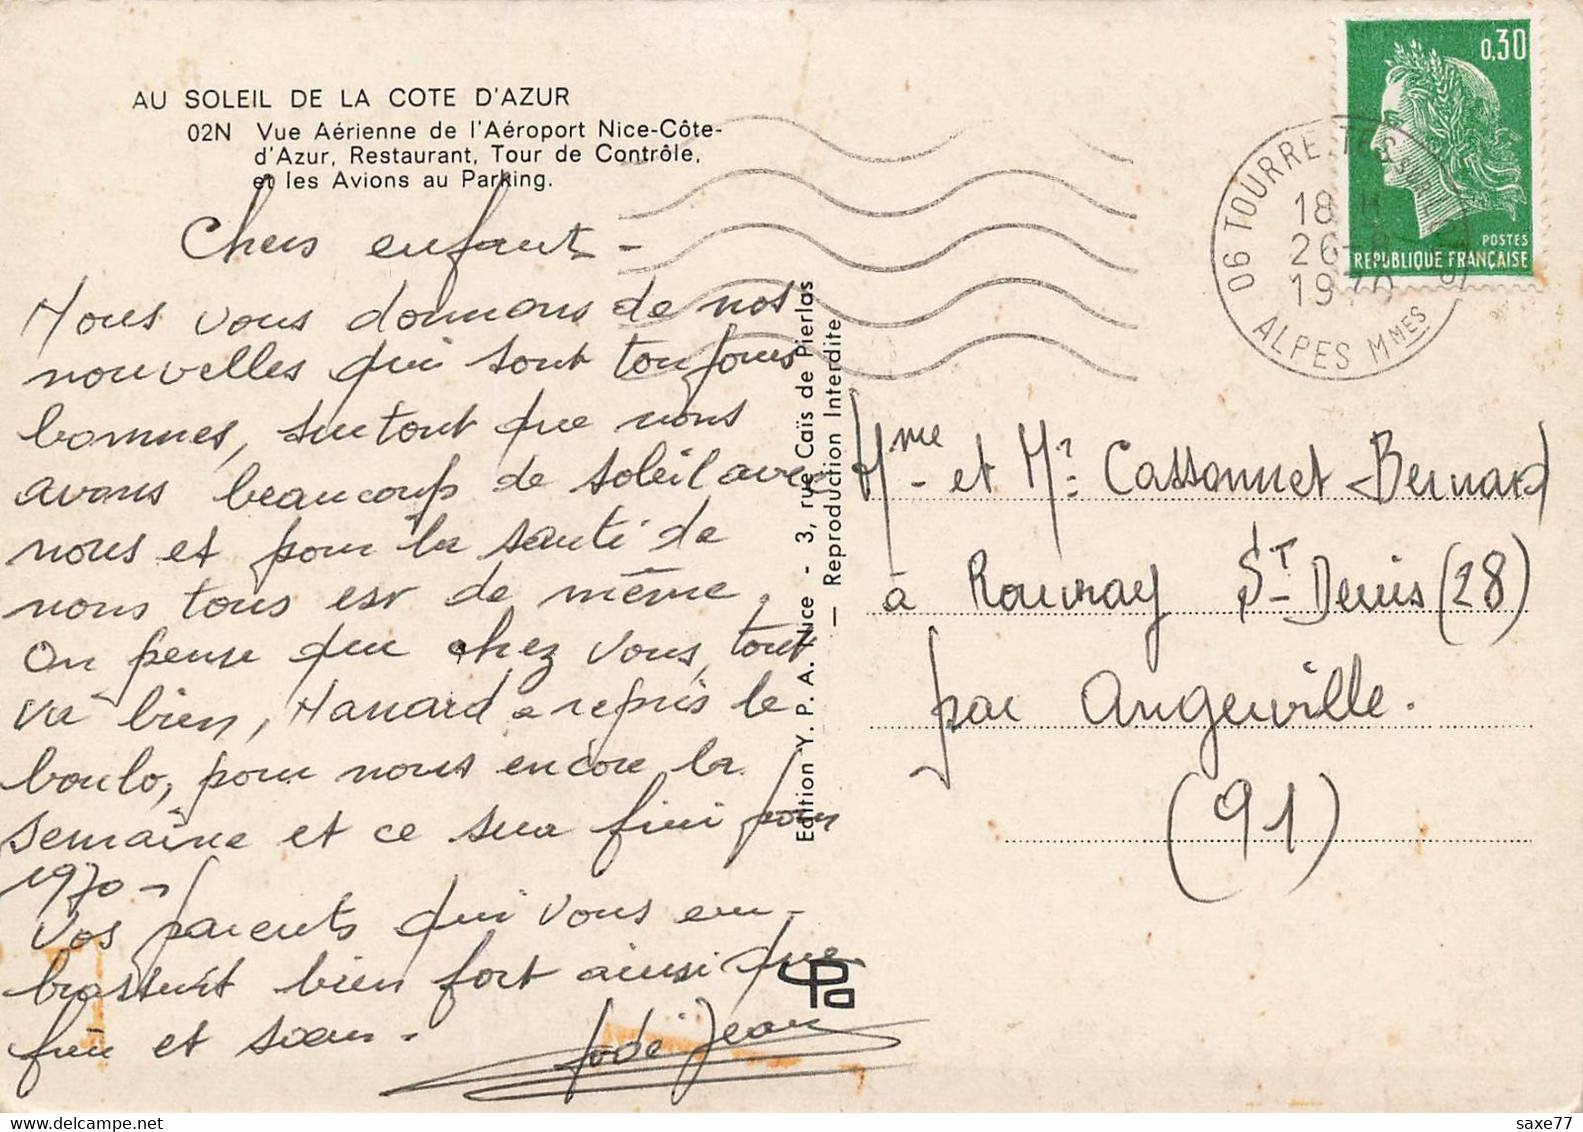 AU SOLEIL DE LA COTE D'AZUR
02N Vue Aérienne de l'Aéroport Nice-Côte-
d'Azur, Restaurant, Tour de Contrôle,
et les Avions au Parking.
Chers enfants -
Nous vous donnons de nos
nouvelles qui sont toujours
bonnes, surtout que nous
avons beaucoup de soleil avec
nous et pour la santé de
nous tous est de même.
On pense que chez vous, tout
va bien, Manard a repris le
boulo, pour nous encore la
semaine et ce sera fini pour
1970 -
Vos parents qui vous em-
brassent bien fort ainsi que
frère et sœur.
Jean
Edition Y. P. A. Nice - 3, rue Caïs de Pierlas
— Reproduction Interdite —
YPA
0,30
POSTES
REPUBLIQUE FRANÇAISE
06 TOURRETTES
18 H
26-
1970
ALPES MMES
Mme et Mr Cassonnet Bernard
à Rouvray St Denis (28)
par Angerville.
(91)
www.delcampe.net
saxe77